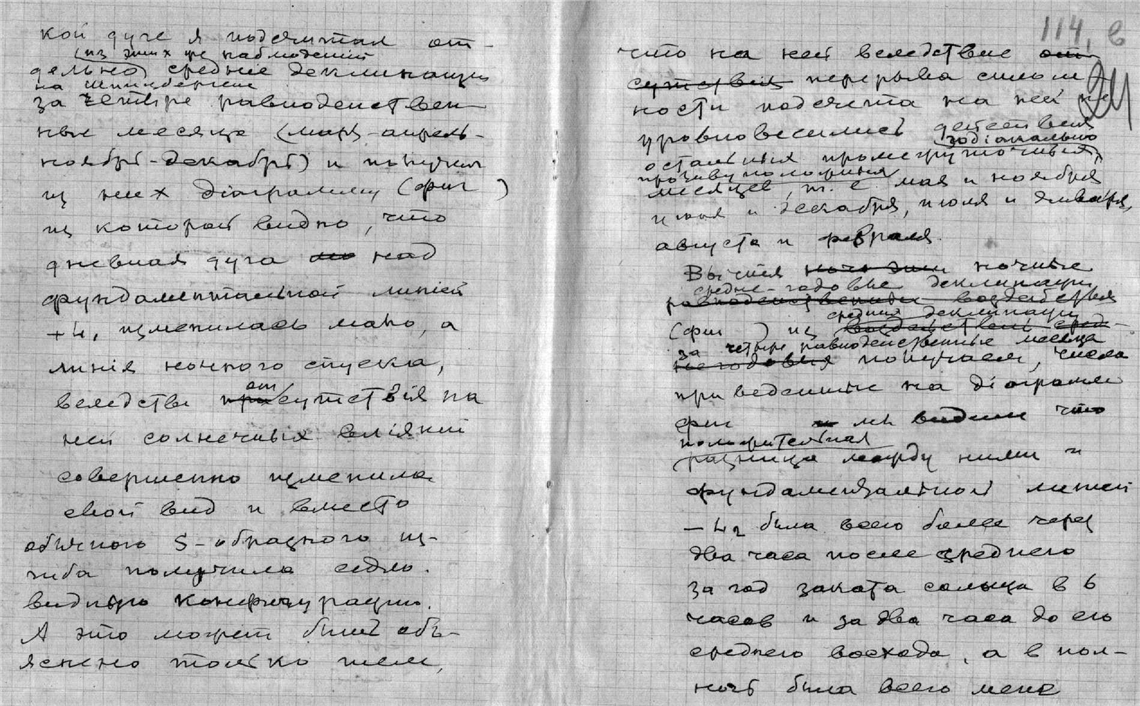 кой дуге я подсчитал от-
(из этих же наблюдений
дельно) средние деклинации
на Шпицбергене
за четыре равноденствен-
ные месяца (март-апрель-
ноябрь-декабрь) и получил
из них діаграмму (фиг )
из которой видно, что
дневная дуга над
фундаментальной линией
+L, изменилась мало, а
линія ночного спуска,
вследствие от
сутствія на
ней солнечных вліяний
совершенно изменила
свой вид и вместо
обычного S-образного из-
гиба получила седло-
видную конфигурацию.
А это может быть объ-
яснено только тем,
114, в
что на ней вследствие от
сутствия перерыва сильм
ности подсчета на ней
уровновесились действия
зодіанально
остальных промежуточных,
противуположныя
месяцев т. е. мая и ноября
июня и декабря, июля и января,
августа и февраля.
Вычтя ночные
средне-годовые деклинации
равноденственные воздействия
(фиг ) из средних деклинации
за четыре равноденственные месяца
негодовыя получаем, числа
приведенные на діограме
фиг мы видим что
положительная
разница между ними и
фундаментальной линией
– L2 была всего более через
два часа после среднего
за год заката солнца в 6
часов и за два часа до его
среднего восхода, а в пол-
ночь была всего мене